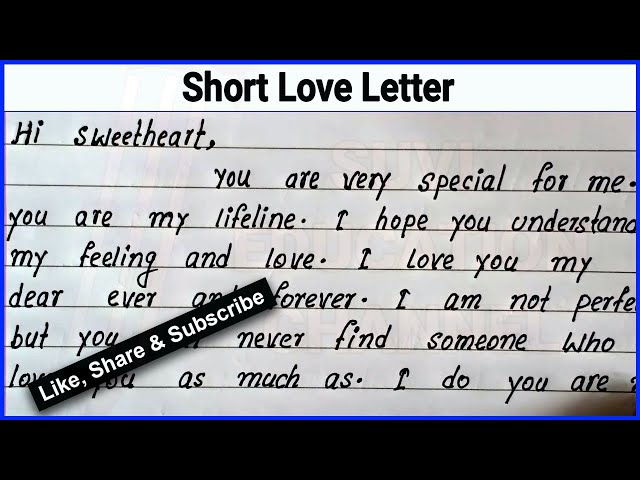 Short Love Letter
Hi sweetheart,
you are very special for me.
you are my lifeline. I hope you understand
my feeling and love. I love you my
dear ever forever. I am not perfe
but you never find someone who
you as much as. I do you are
Like, Share & Subscribe
SUVI
EDUCATION
CHANNEL